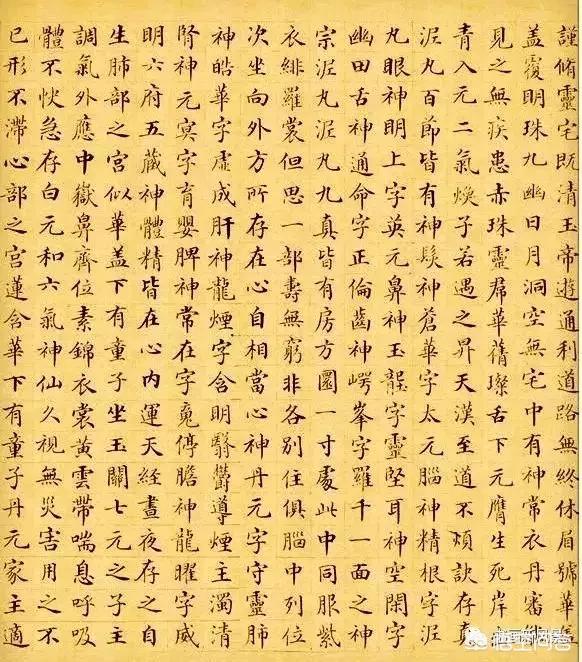 謹脩靈宅既清玉帝遊通利道路無終休眉號華
盖覆明珠九幽日月洞空無宅中有神常衣丹審
見之無疾患赤珠靈帬華蒨璨舌下元膺生死岸
青入元二氣煥子若遇之昇天漢至道不煩訣存真
泥丸百節皆有神髮神蒼華字太元腦神精根字泥
丸眼神明上字英元鼻神玉壟字靈堅耳神空閑字
幽田舌神通命字正倫齒神崿峯字羅千一面之神
宗泥丸泥丸九真皆有房方圓一寸處此中同服紫
衣緋羅裳但思一部壽無窮非各別住俱腦中列位
次坐向外方所存在心自相當心神丹元字守靈肺
神皓華字虛成肝神龍煙字含明翳欝導煙主濁清
腎神元冥字育嬰脾神常在字魂停膽神龍曜字威
明六府五藏神體精皆在心內運天經晝夜存之自
生肺部之宮似華盖下有童子坐玉闕七元之子主
調氣外應中嶽鼻齊位素錦衣裳黃雲帶喘息呼吸
體不快急存白元和六氣神仙久視無災害用之不
已形不滯心部之宮蓮含華下有童子丹元家主適
悟空问答